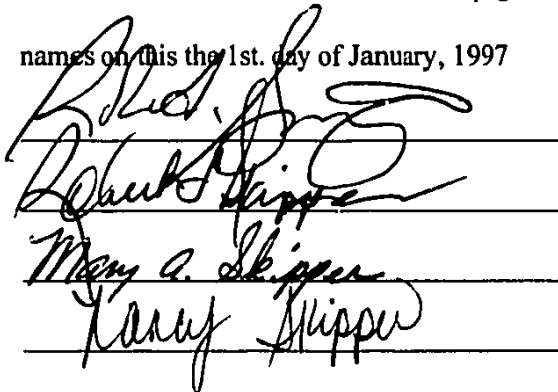 names on this the 1st. day of January, 1997
Robert Skipper
Mary A. Skipper
Nancy Skipper